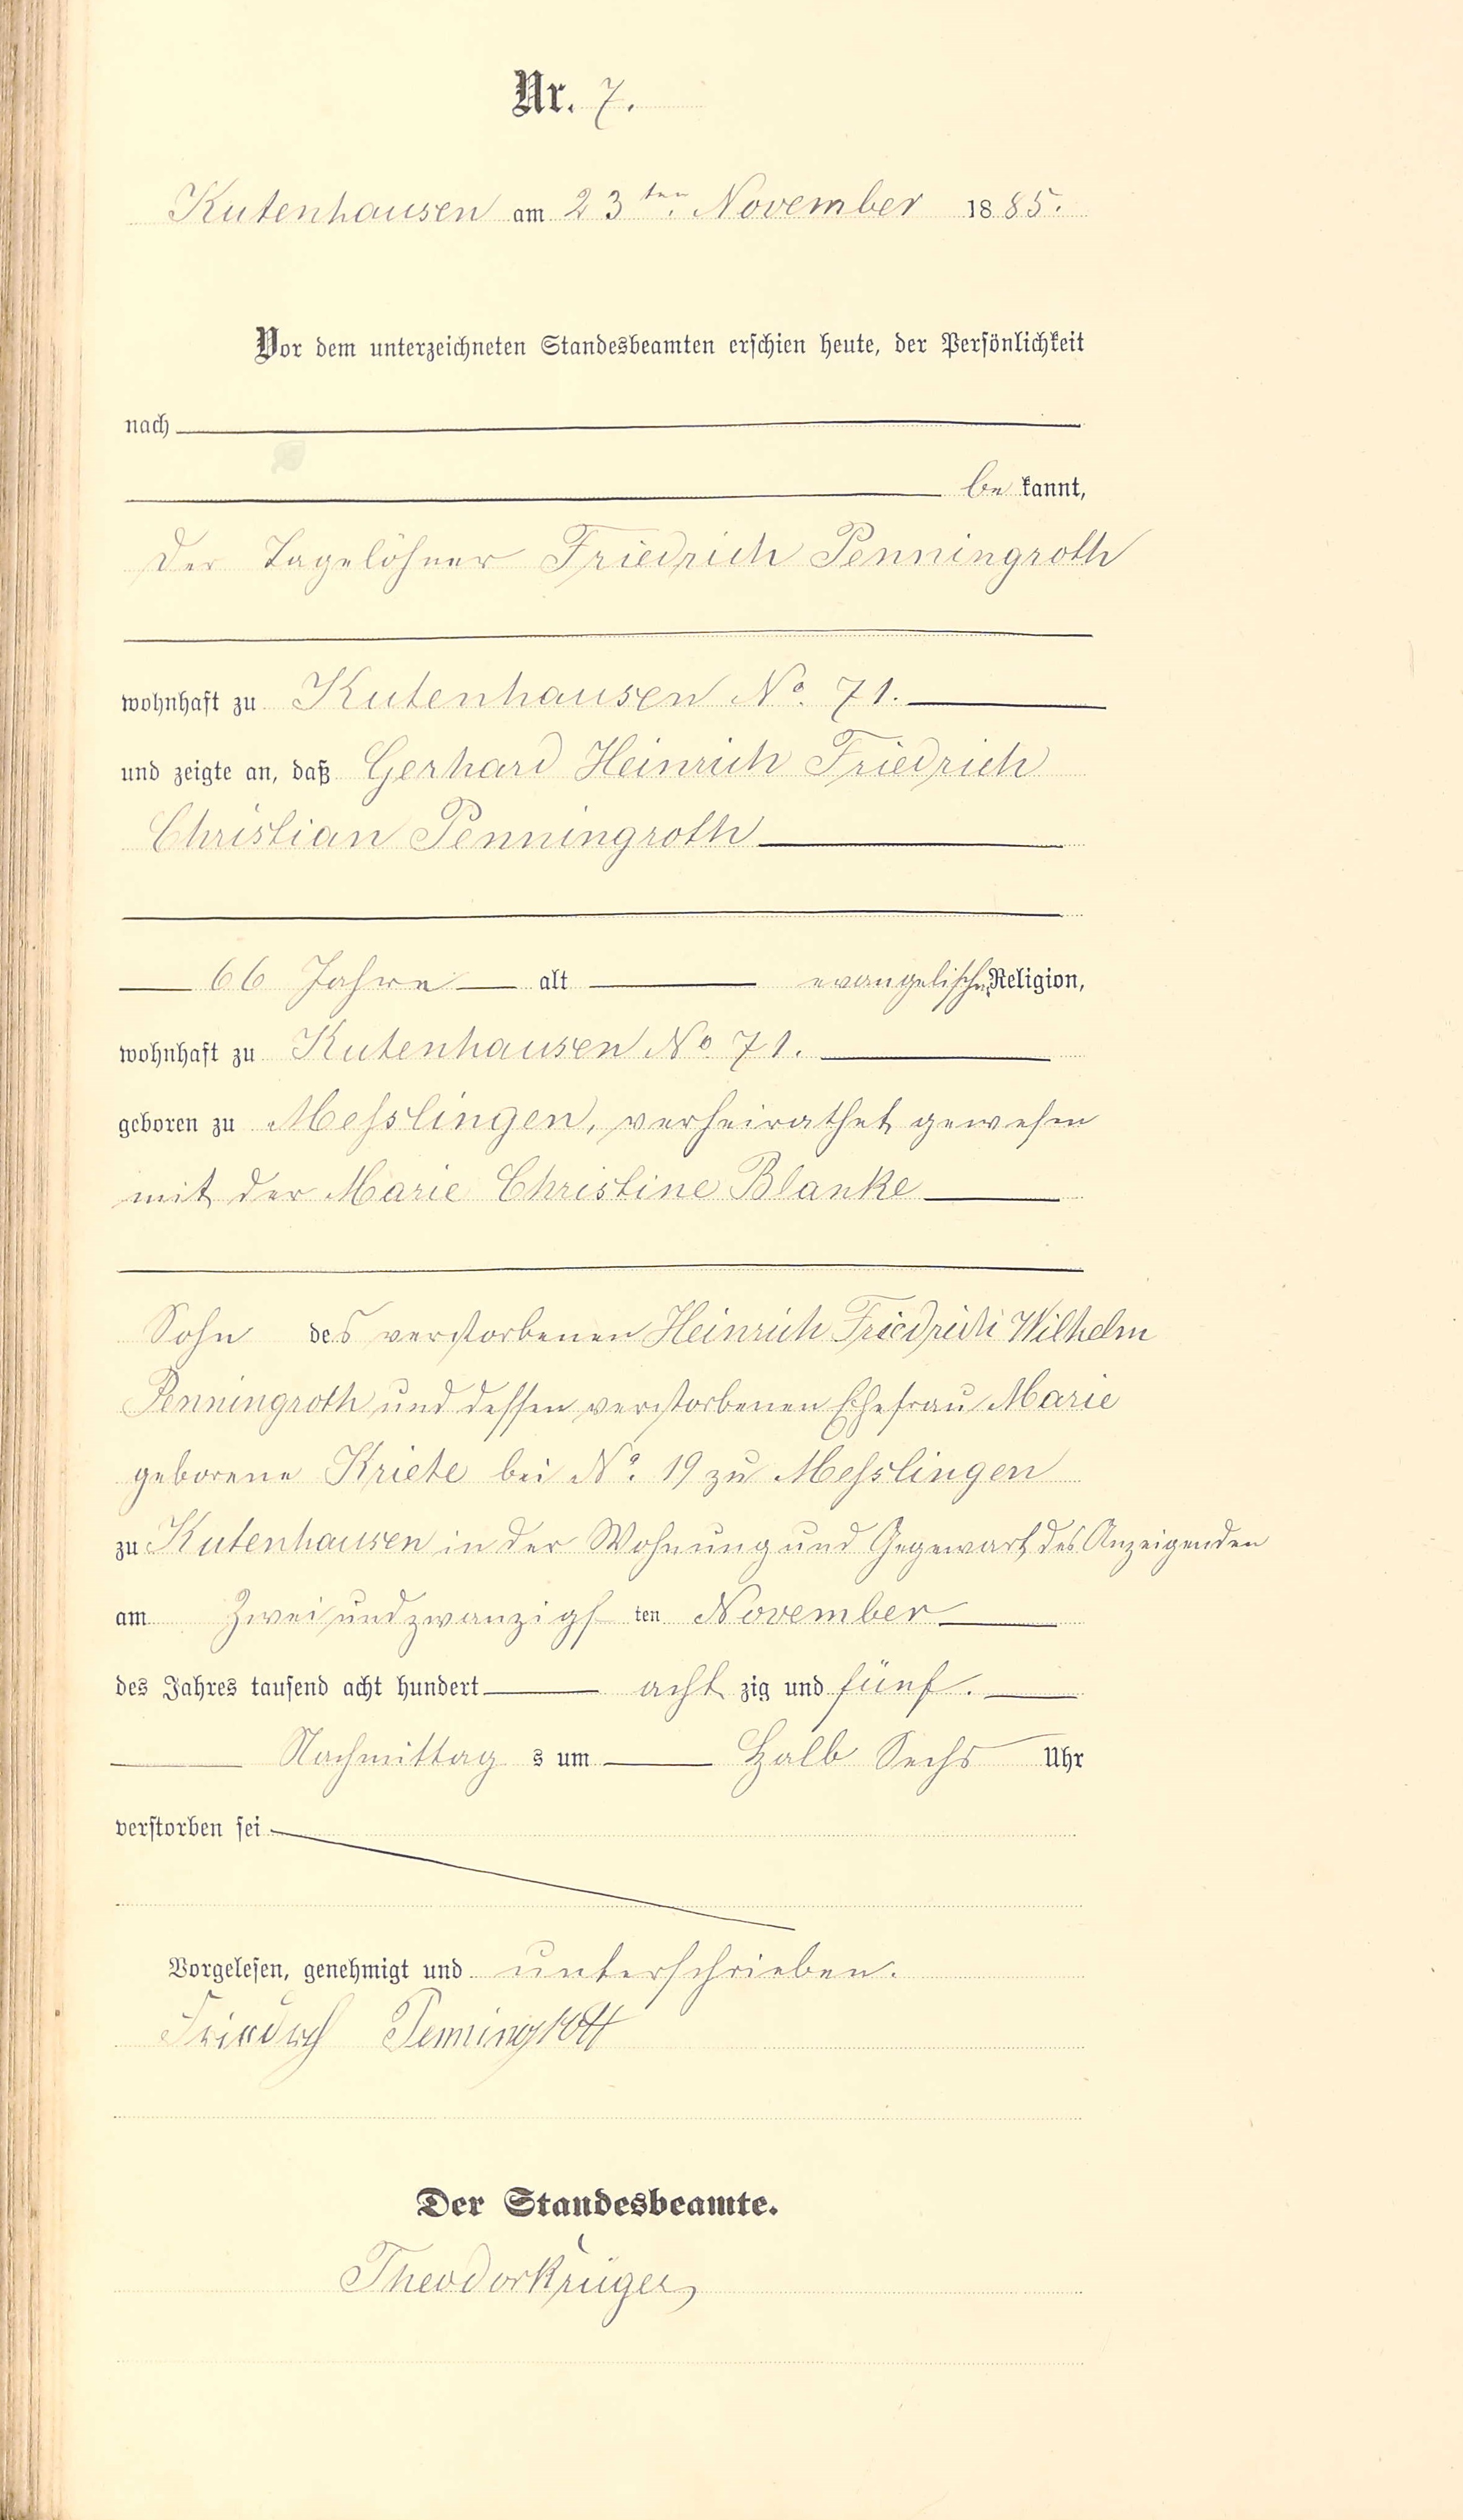 Nr. 7.
Kutenhausen am 23ten November 1885.
Vor dem unterzeichneten Standesbeamten erschien heute, der Persönlichkeit
nach
be kannt,
der Tagelöhner Friedrich Penningroth
wohnhaft zu Kutenhausen No. 71.
und zeigte an, daß Gerhard Heinrich Friedrich
Christian Penningroth
66 Jahre alt evangelischer Religion,
wohnhaft zu Kutenhausen No 71.
geboren zu Messlingen, verheirathet gewesen
mit der Marie Christine Blanke
Sohn des verstorbenen Heinrich Friedrich Wilhelm
Penningroth und dessen verstorbenen Ehefrau Marie
geborene Kriete bei No. 19 zu Messlingen
zu Kutenhausen in der Wohnung und Gegewart des Anzeigenden
am Zwei und zwanzigs ten November
des Jahres tausend acht hundert acht zig und fünf.
Nachmittag s um Halb Sechs Uhr
verstorben sei
Vorgelesen, genehmigt und unterschrieben.
Friedrich Penningroth
Der Standesbeamte.
Theodor Krüger